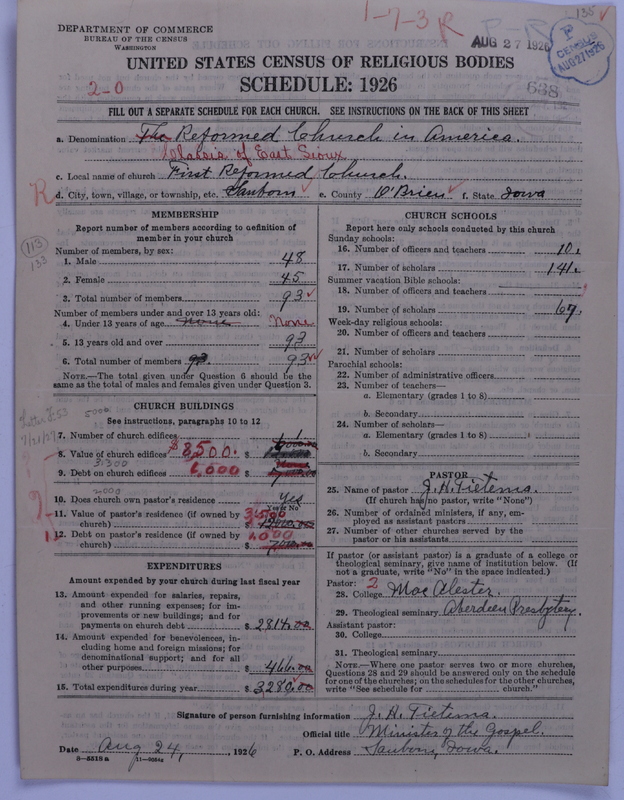 1-7-3 R
135 ✓
DEPARTMENT OF COMMERCE
BUREAU OF THE CENSUS
WASHINGTON
AUG 27 1926
P
CENSUS
AUG 27 1926
UNITED STATES CENSUS OF RELIGIOUS BODIES
SCHEDULE: 1926
2-0
638
FILL OUT A SEPARATE SCHEDULE FOR EACH CHURCH. SEE INSTRUCTIONS ON THE BACK OF THIS SHEET
a. Denomination The Reformed Church in America.
Classis of East Sioux
c. Local name of church First Reformed Church.
R
d. City, town, village, or township, etc. Sanborn ✓ e. County O'Brien ✓ f. State Iowa
MEMBERSHIP
Report number of members according to definition of
member in your church
113
133
Number of members, by sex:
1. Male 48
2. Female 45
3. Total number of members 93 ✓
Number of members under and over 13 years old:
4. Under 13 years of age None None
5. 13 years old and over 93
6. Total number of members 93. 93 ✓✓
NOTE.—The total given under Question 6 should be the
same as the total of males and females given under Question 3.
CHURCH BUILDINGS
See instructions, paragraphs 10 to 12
Letter F.53 5000
7/21/27
7. Number of church edifices 1
8. Value of church edifices $8,500.
3,300
9. Debt on church edifices 6,000
2000
10. Does church own pastor's residence Yes
Yes or No
11. Value of pastor's residence (if owned by
church) $ 3500
12. Debt on pastor's residence (if owned by
church) $ 1,000
EXPENDITURES
Amount expended by your church during last fiscal year
13. Amount expended for salaries, repairs,
and other running expenses; for im-
provements or new buildings; and for
payments on church debt $ 2814.00
14. Amount expended for benevolences, in-
cluding home and foreign missions; for
denominational support; and for all
other purposes $ 466.00
15. Total expenditures during year $ 3280.00
CHURCH SCHOOLS
Report here only schools conducted by this church
Sunday schools:
16. Number of officers and teachers 10.
17. Number of scholars 141.
Summer vacation Bible schools:
18. Number of officers and teachers
19. Number of scholars 67.
Week-day religious schools:
20. Number of officers and teachers
21. Number of scholars
Parochial schools:
22. Number of administrative officers
23. Number of teachers—
a. Elementary (grades 1 to 8)
b. Secondary
24. Number of scholars—
a. Elementary (grades 1 to 8)
b. Secondary
PASTOR
25. Name of pastor J. H. Tietema.
(If church has no pastor, write "None")
26. Number of ordained ministers, if any, em-
ployed as assistant pastors
27. Number of other churches served by the
pastor or his assistants
If pastor (or assistant pastor) is a graduate of a college or
theological seminary, give name of institution below. (If
not a graduate, write "No" in the space indicated.)
Pastor: 2
28. College Mac Alester.
29. Theological seminary Aberdeen Presbytery.
Assistant pastor:
30. College
31. Theological seminary
NOTE.—Where one pastor serves two or more churches,
Questions 28 and 29 should be answered only on the schedule
for one of the churches; on the schedules for the other churches,
write "See schedule for church."
Signature of person furnishing information J. H. Tietema.
Official title Minister of the Gospel.
Date Aug 24, 1926 P. O. Address Sanborn, Iowa.
8-5518 a